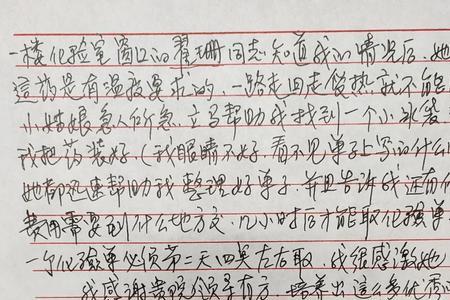 一楼化验室窗口的翟珊同志知道我的情况后,她
这药是有温度要求的,一路走回走发热,就不能
小姑娘急人所急,立马帮助我找到一个小冰袋
我把药装好(我眼睛不好,看不见单子上写的什么
她都迅速帮助我整理好单子,并且告诉我还有
费用需要到什么地方交,几小时后才能取化验单
一个化验单必须第二天四点左右取,我很感激她
我感谢贵院领导有方,培养出这么多优秀